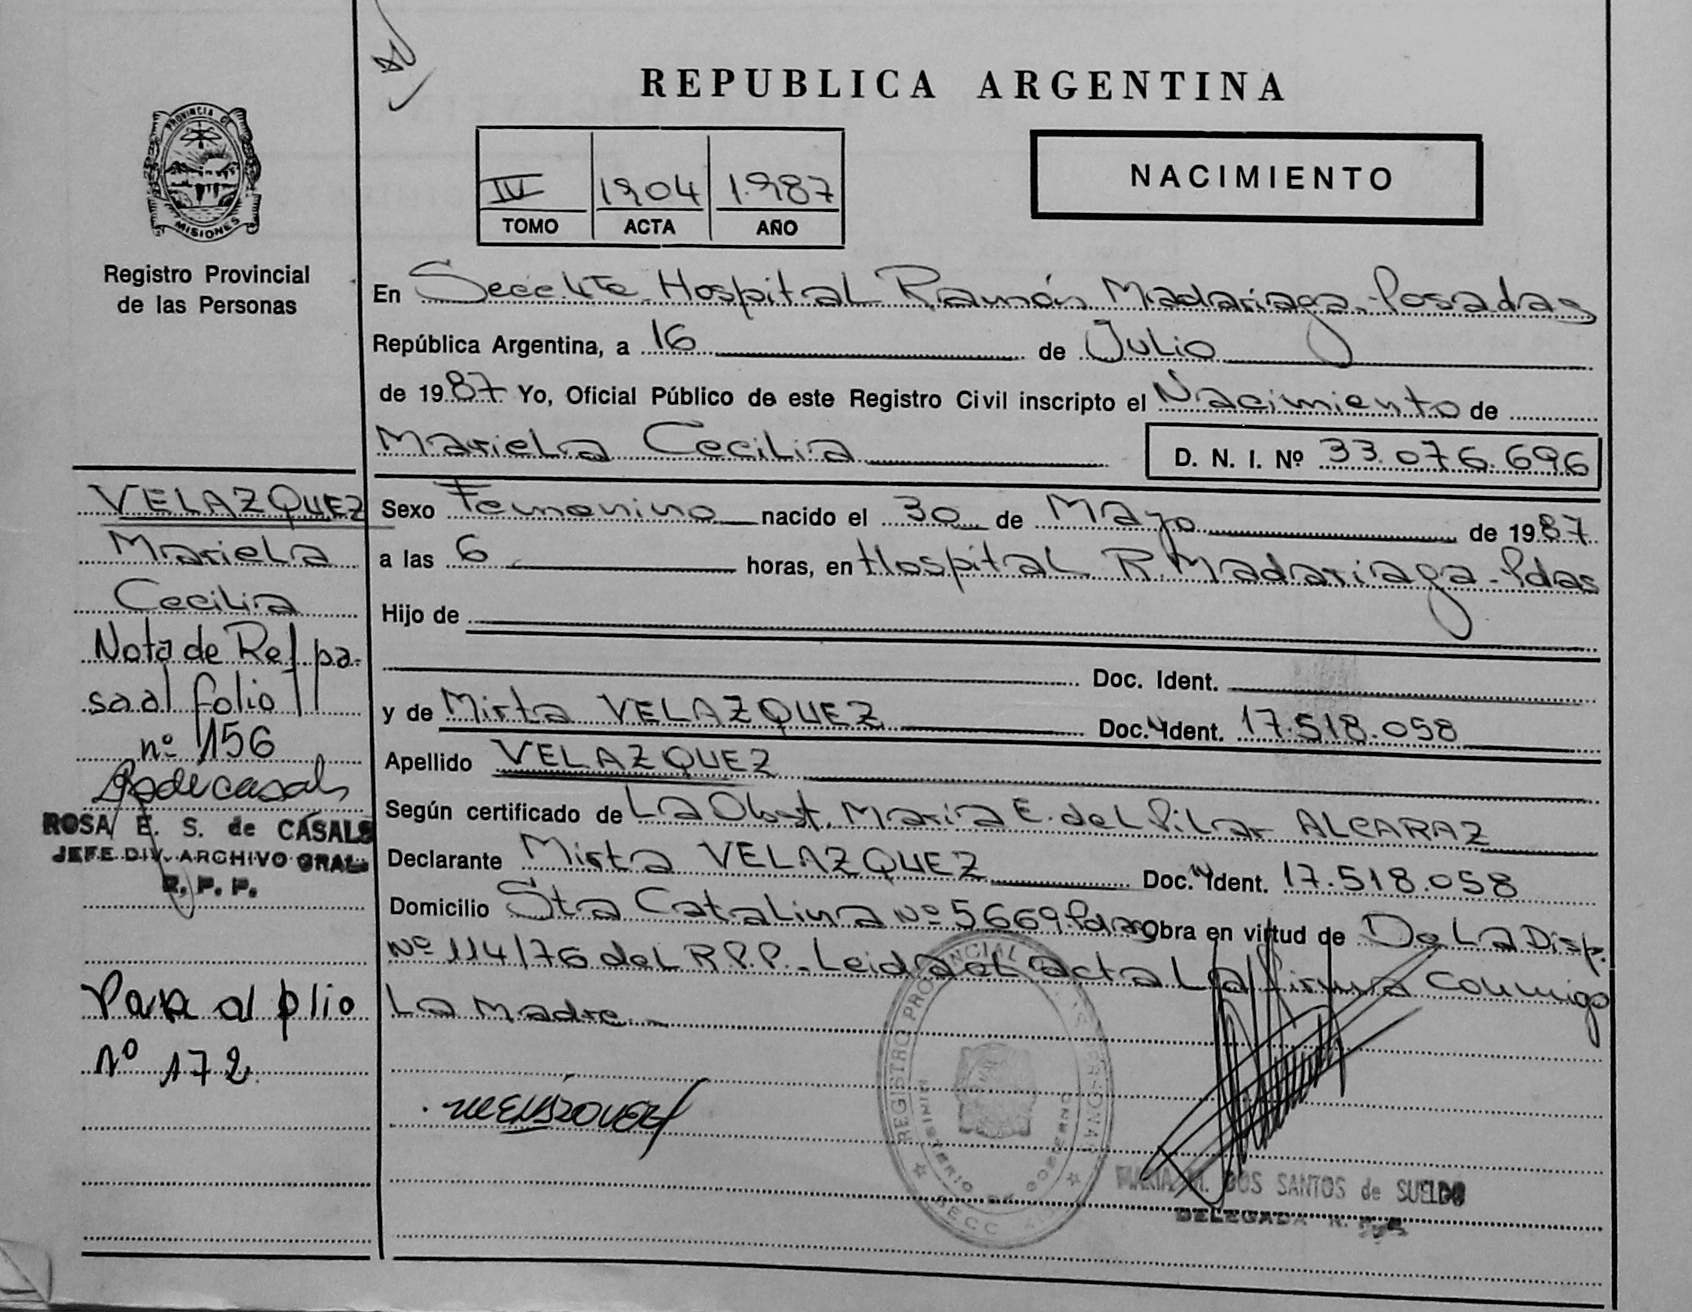 REPUBLICA ARGENTINA
PROVINCIA DE
MISIONES
Registro Provincial
de las Personas
IV 1904 1.987
TOMO ACTA AÑO
NACIMIENTO
En Hospital Ramón Madariaga - Posadas
República Argentina, a 16 de Julio
de 1987 Yo, Oficial Público de este Registro Civil inscripto el Nacimiento de
Mariela Cecilia D. N. I. Nº 33.076.696
Sexo Femenino nacido el 30 de Mayo de 1987
a las 6 horas, en Hospital R. Madariaga - Pdas
Hijo de
Doc. Ident.
y de Mirta VELAZQUEZ Doc. Ident. 17.518.058
Apellido VELAZQUEZ
Según certificado de La Obst. Maria E. del Pilar ALCARAZ
Declarante Mirta VELAZQUEZ Doc. Ident. 17.518.058
Domicilio Sta Catalina Nº 5669 Pdas Obra en virtud de De La Disp.
Nº 114/76 del R.P.P. - Leida el acta La firma conmigo
La Madre
VELAZQUEZ
Mariela
Cecilia
Nota de Ref pa-
sa al folio
nº 156
ROSA E. S. de CASALS
JEFE DIV. ARCHIVO GRAL.
R. P. P.
Pasa al folio
Nº 172
REGISTRO PROVINCIAL DE LAS PERSONAS
MINISTERIO DE
SECC
MARIA M. DOS SANTOS de SUELDO
DELEGADA